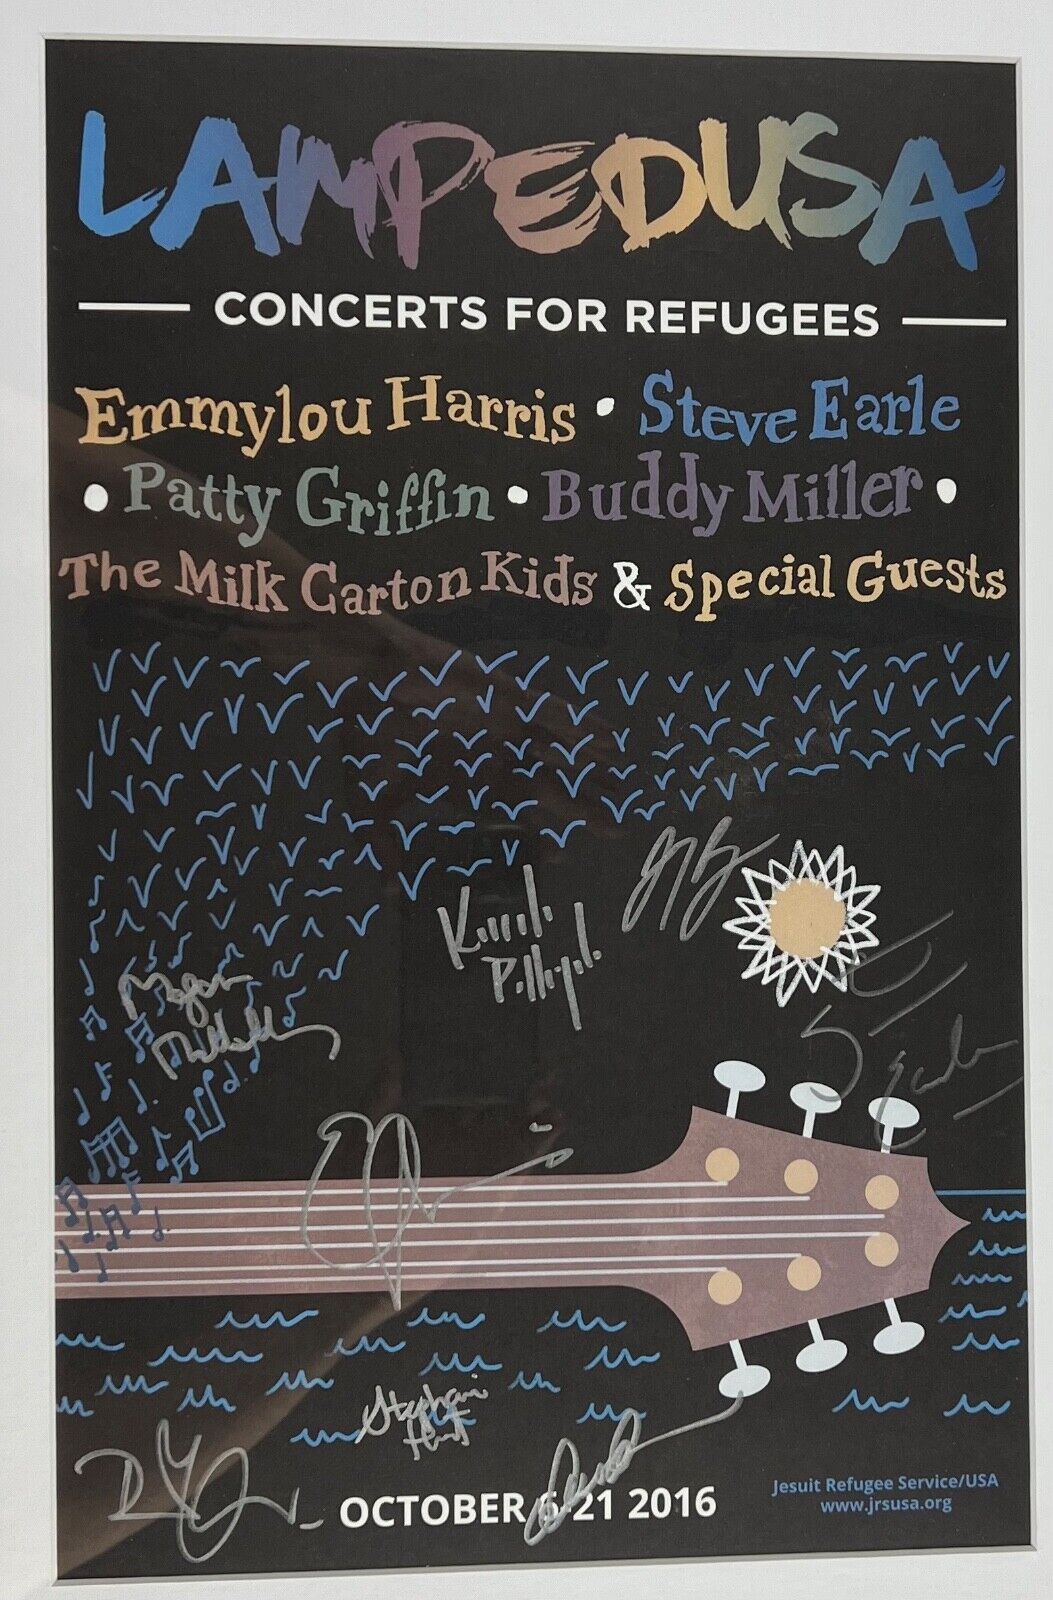 LAMPEDUSA
CONCERTS FOR REFUGEES
Emmylou Harris • Steve Earle
• Patty Griffin • Buddy Miller •
The Milk Carton Kids & Special Guests
Stephanie
Hunt
OCTOBER 6-21 2016
Jesuit Refugee Service/USA
www.jrsusa.org